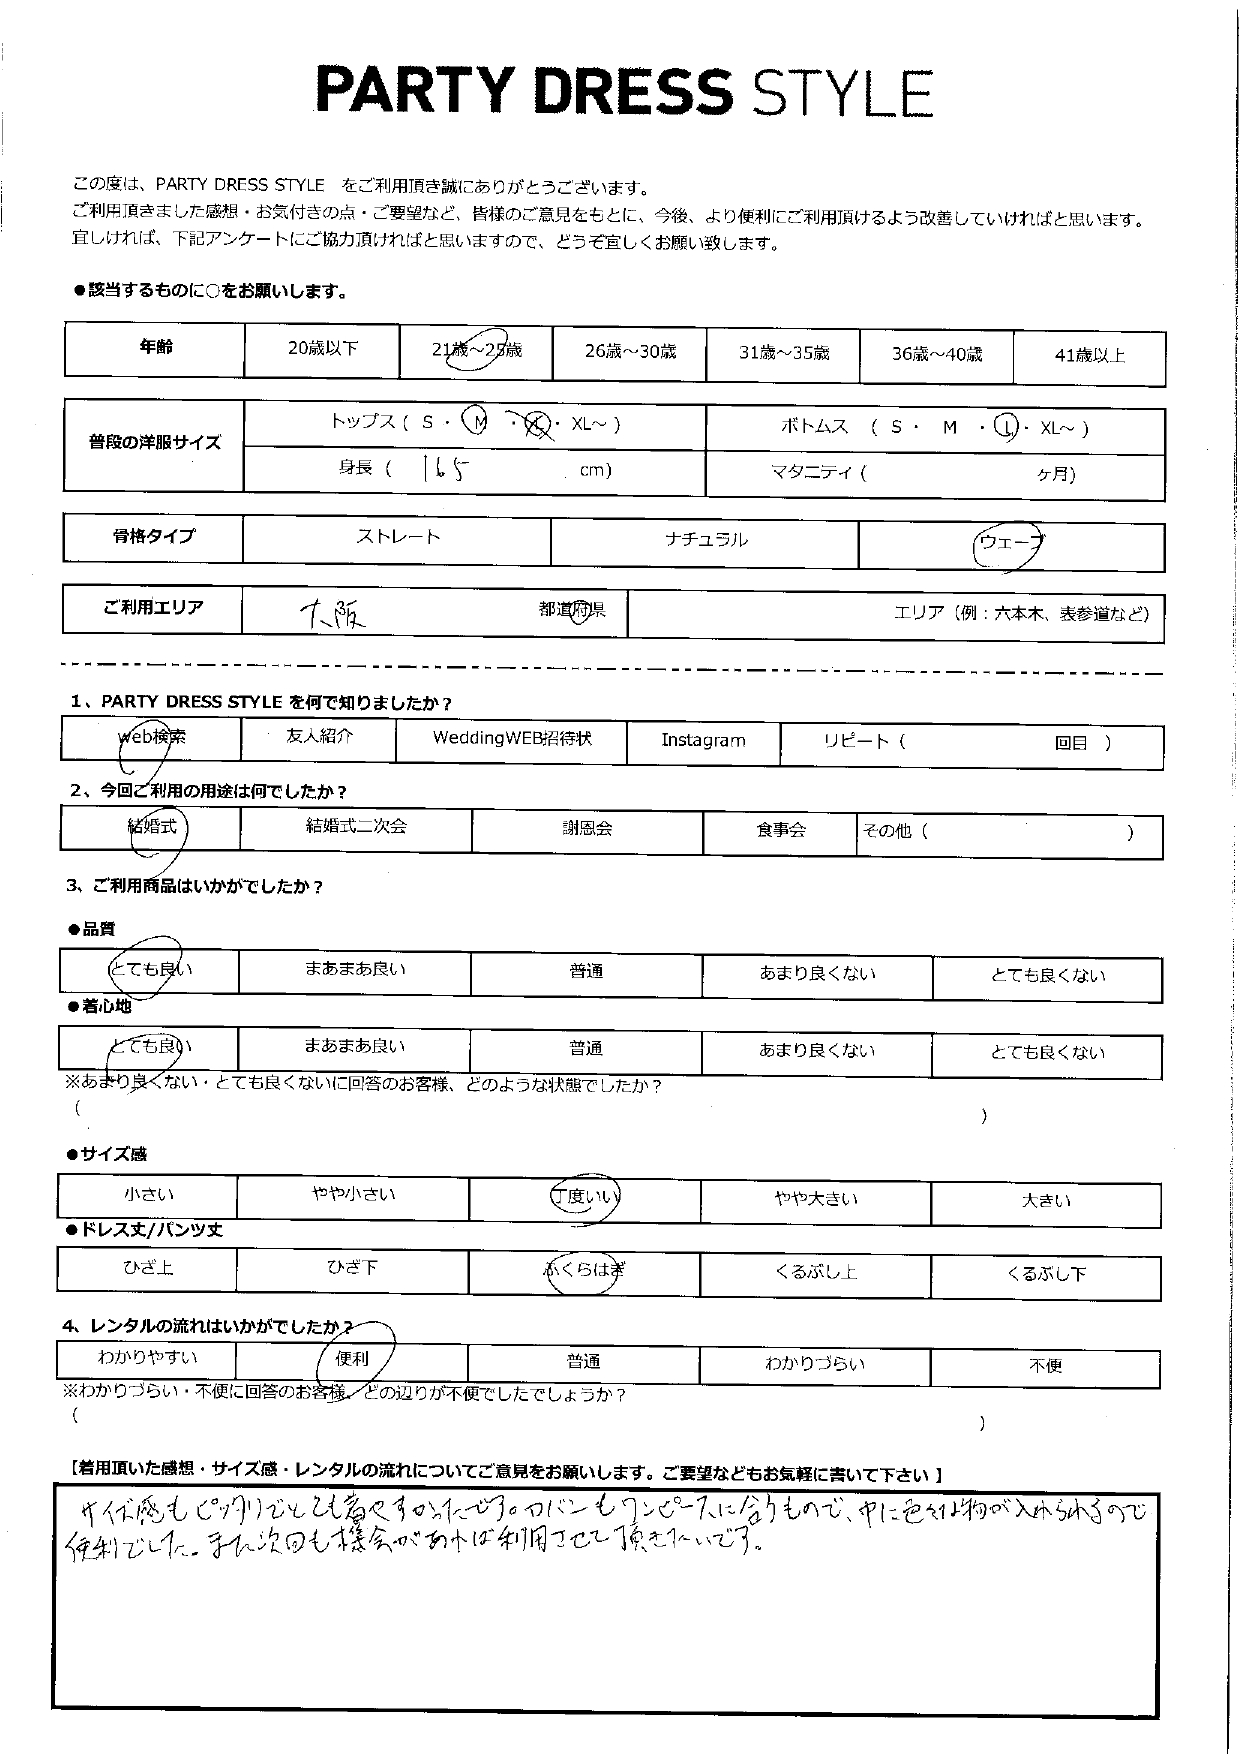 PARTY DRESS STYLE
この度は、PARTY DRESS STYLE をご利用頂き誠にありがとうございます。
ご利用頂きました感想・お気付きの点・ご要望など、皆様のご意見をもとに、今後、より便利にご利用頂けるよう改善していければと思います。
宜しければ、下記アンケートにご協力頂ければと思いますので、どうぞ宜しくお願い致します。
●該当するものに○をお願いします。
年齢 20歳以下 21歳～25歳 26歳～30歳 31歳～35歳 36歳～40歳 41歳以上
普段の洋服サイズ トップス ( S ・ M ・ L ・ XL～ ) ボトムス ( S ・ M ・ L ・ XL～ )
身長 ( 165 cm) マタニティ ( ヶ月)
骨格タイプ ストレート ナチュラル ウェーブ
ご利用エリア 大阪 都道府県 エリア (例：六本木、表参道など)
1、PARTY DRESS STYLE を何で知りましたか？
Web検索 友人紹介 WeddingWEB招待状 Instagram リピート ( 回目 )
2、今回ご利用の用途は何でしたか？
結婚式 結婚式二次会 謝恩会 食事会 その他 ( )
3、ご利用商品はいかがでしたか？
●品質
とても良い まあまあ良い 普通 あまり良くない とても良くない
●着心地
とても良い まあまあ良い 普通 あまり良くない とても良くない
※あまり良くない・とても良くないに回答のお客様、どのような状態でしたか？
( )
●サイズ感
小さい やや小さい 丁度いい やや大きい 大きい
●ドレス丈/パンツ丈
ひざ上 ひざ下 ふくらはぎ くるぶし上 くるぶし下
4、レンタルの流れはいかがでしたか？
わかりやすい 便利 普通 わかりづらい 不便
※わかりづらい・不便に回答のお客様、どの辺りが不便でしたでしょうか？
( )
【着用頂いた感想・サイズ感・レンタルの流れについてご意見をお願いします。ご要望などもお気軽に書いて下さい 】
サイズ感もピッタリでとても着やすかったです。カバンもワンピースに合うもので、中に色々な物が入れられるので
便利でした。また次回も機会があれば利用させて頂きたいです。